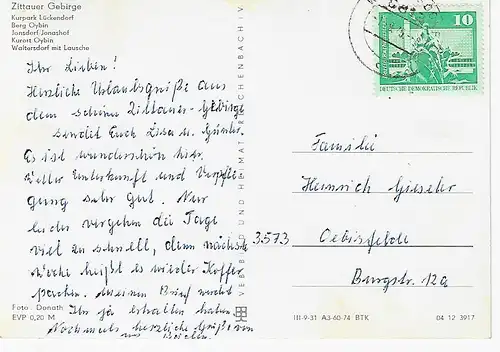 Zittauer Gebirge
Kurpark Lückendorf
Berg Oybin
Jonsdorf-Jonashof
Kurort Oybin
Waltersdorf mit Lausche
Ihr Lieben!
Herzliche Urlaubsgrüße aus
dem schönen Zittauer-Gebirge
sendet Euch Lisa u. Günter.
Es ist wunderschön hier.
Wetter Unterkunft und Verpfle
gung sehr gut. Nur
leider vergehen die Tage
viel zu schnell, denn nächste
Woche heißt es wieder Koffer
packen. einen Brief werdet
Ihr ja erhalten haben
Nochmals herzliche Grüße von
uns beiden.
Foto: Donath
EVP 0,20 M
VERB UND HEIMAT REICHENBACH I. V.
10
DEUTSCHE DEMOKRATISCHE REPUBLIK
Familie
Heinrich Gieseler
3573 Oebisfelde
Burgstr. 12a
III-9-31 A3-60-74 BTK
04 12 3917